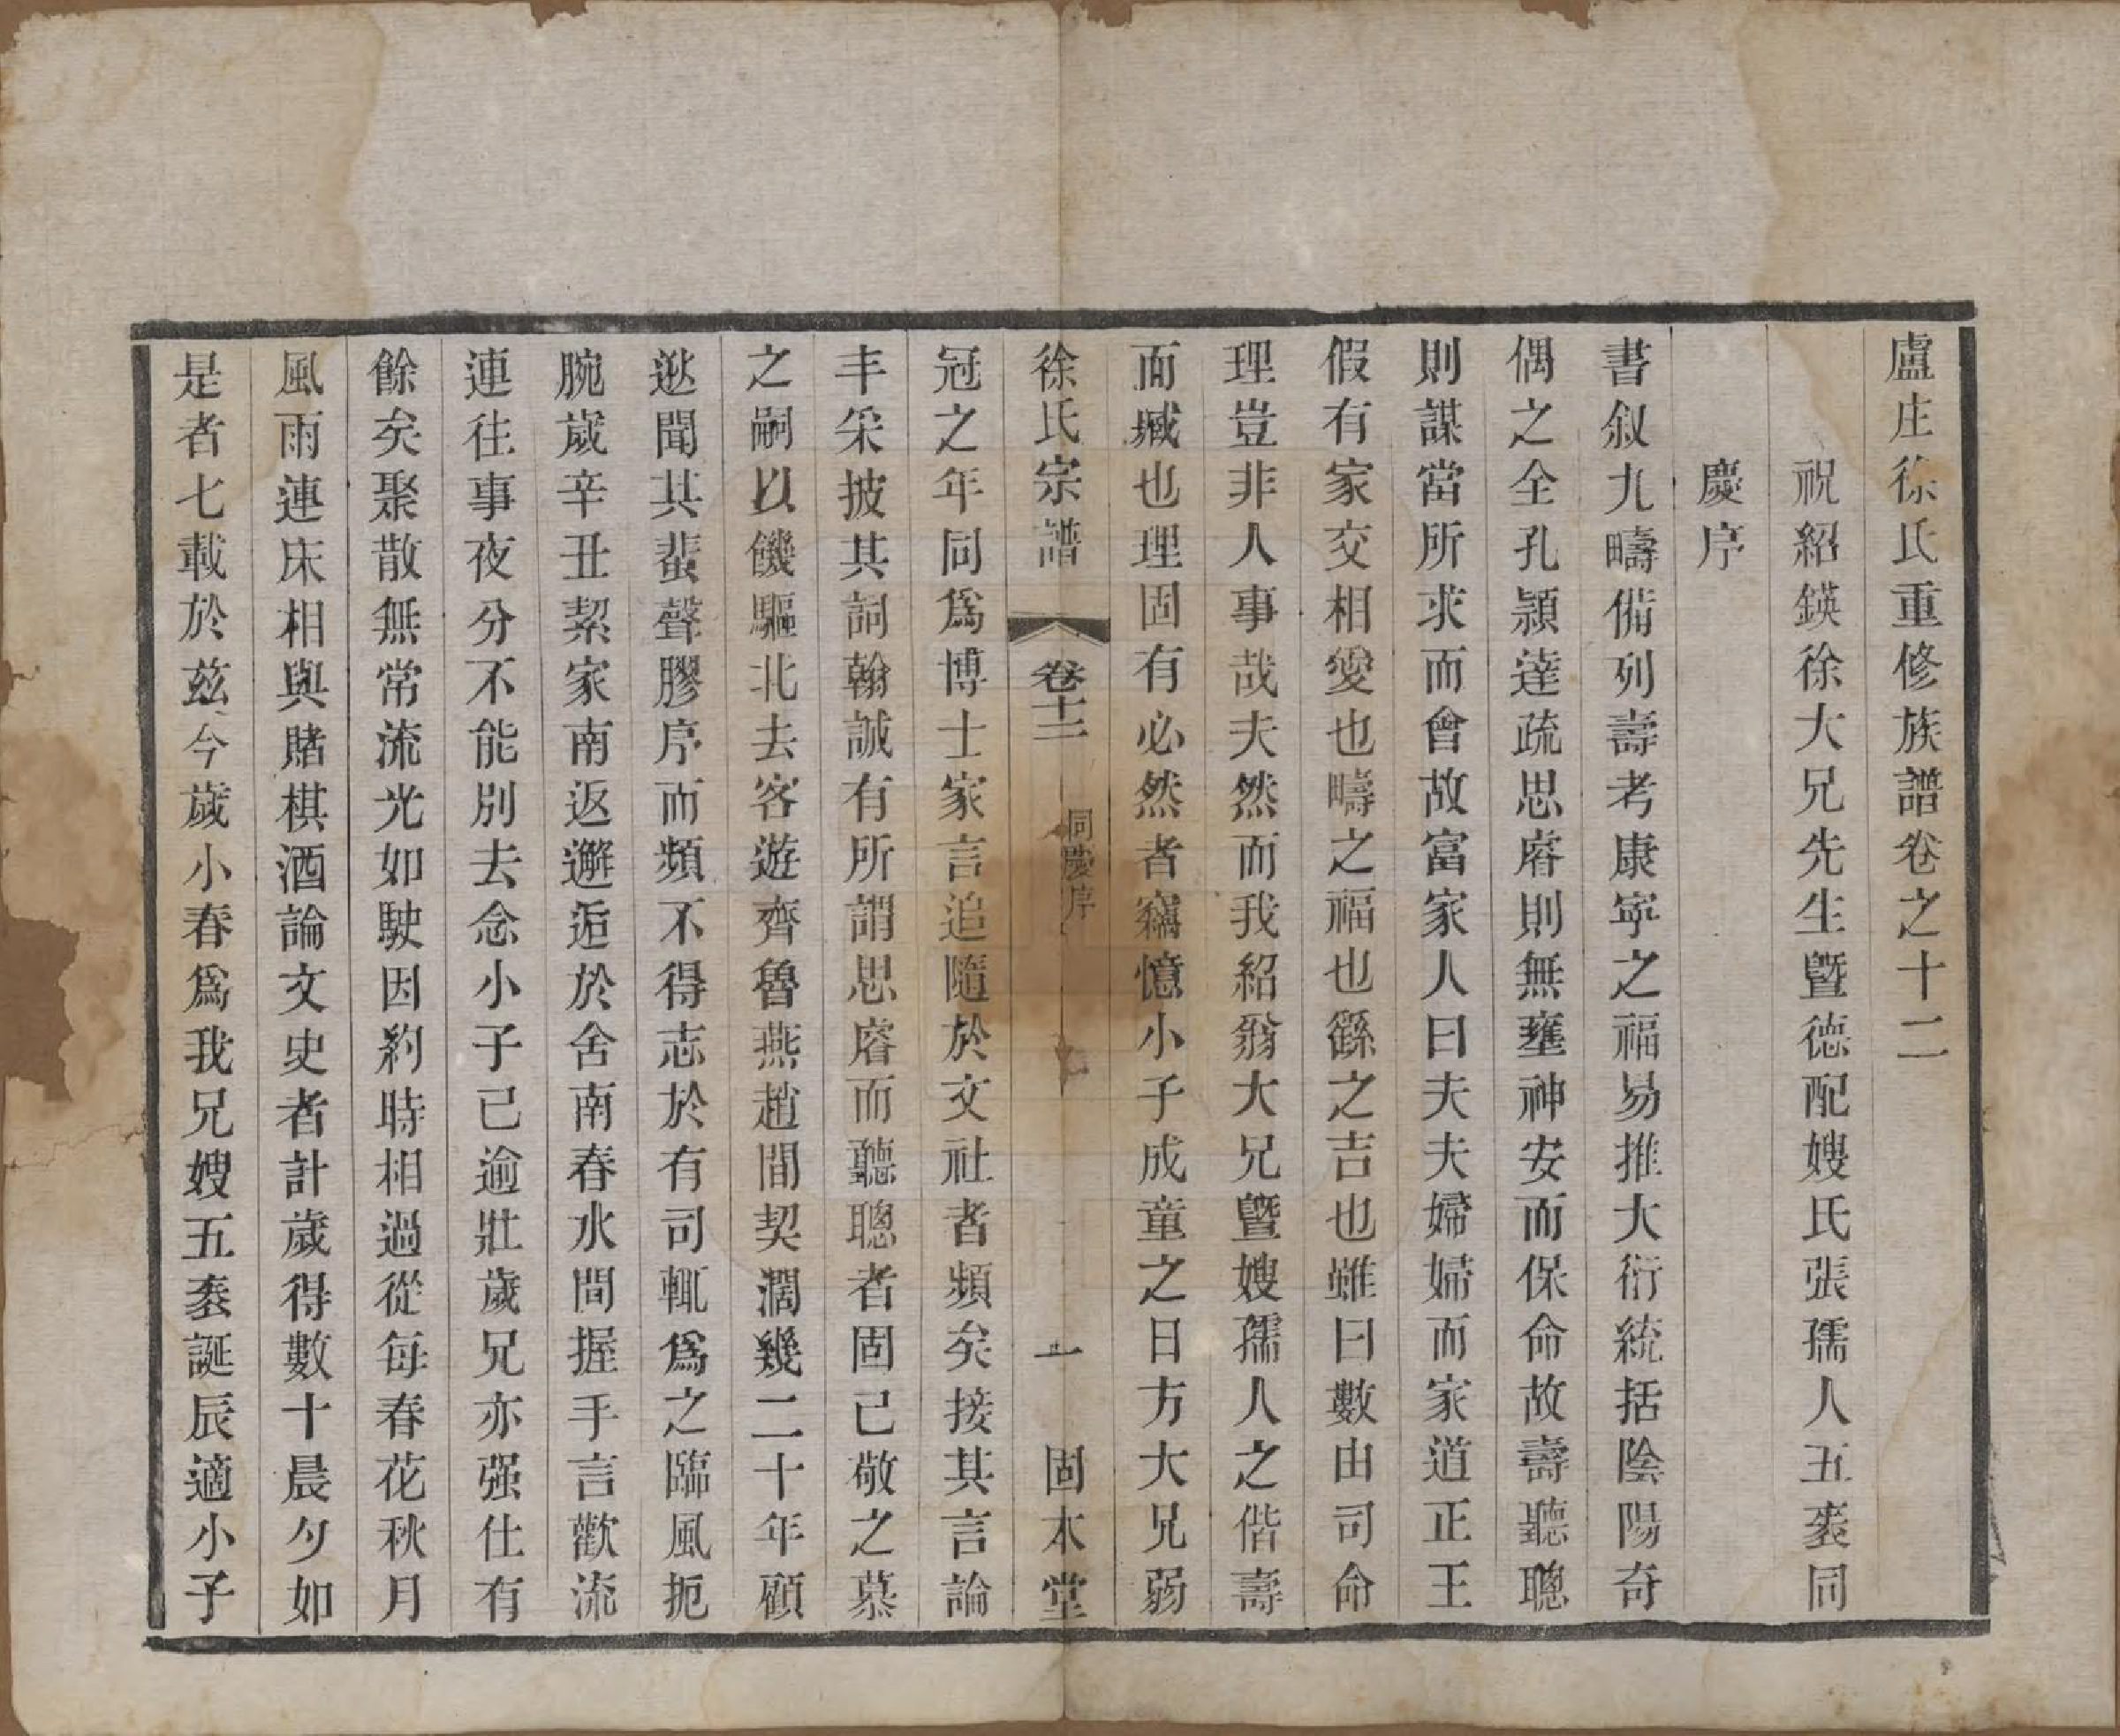 盧庄徐氏重修族譜卷之十二
祝紹鍈徐大兄先生曁德配嫂氏張孺人五袠同
慶序
書叙九疇備列壽考康寧之福易推大衍統括陰陽奇
偶之全孔頴達疏思睿則無壅神安而保命故壽聽聰
則謀當所求而會故富家人曰夫夫婦婦而家道正王
假有家交相愛也疇之福也繇之吉也雖曰數由司命
理豈非人事哉夫然而我紹翁大兄曁嫂孺人之偕壽
而臧也理固有必然者竊憶小子成童之日方大兄弱
徐氏宗譜 卷十二 同慶序 一 固本堂
冠之年同爲博士家言追隨於文社者頻矣接其言論
丰采披其詞翰誠有所謂思睿而聽聰者固已敬之慕
之嗣以饑驅北去客遊齊魯燕趙間契濶幾二十年顧
逖聞其蜚聲膠序而頻不得志於有司輒爲之臨風扼
腕歲辛丑絜家南返邂逅於舍南春水間握手言歡流
連往事夜分不能別去念小子已逾壯歲兄亦强仕有
餘矣聚散無常流光如駛因剎時相過從每春花秋月
風雨連床相與賭棋酒論文史者計歲得數十晨夕如
是者七載於茲今歲小春爲我兄嫂五袠誕辰適小子